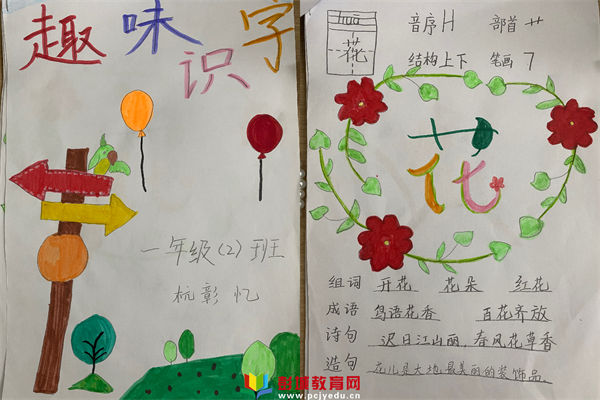 趣味识字
一年级(2)班
杭彰忆
hua
花
音序H 部首艹
结构上下 笔画7
花
组词 开花 花朵 红花
成语 鸟语花香 百花齐放
诗句 迟日江山丽,春风花草香
造句 花儿是大地最美丽的装饰品。
制成教育网
www.pcjyedu.cn